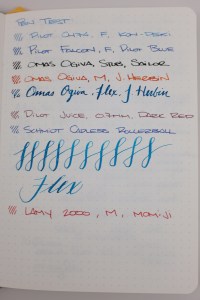 Pen Test
Pilot Cmta, F, Kon-Peki
Pilot Falcon, F, Pilot Blue
Omas Ogiva, Stub, Sailor
Omas Ogiva, M, J. Herbin
Omas Ogiva, flex, J Herbin
Pilot Juice, 0.7mm, Dark Red
Schmidt Capless Rollerball
Flex
Lamy 2000, M, Momiji